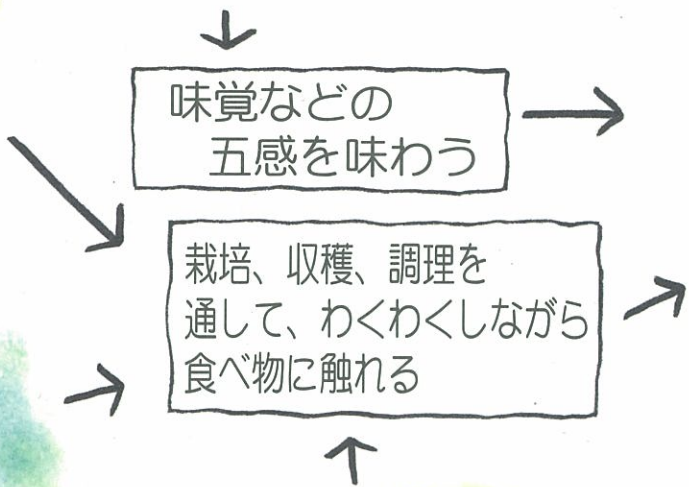 味覚などの
五感を味わう
栽培、収穫、調理を
通して、わくわくしながら
食べ物に触れる